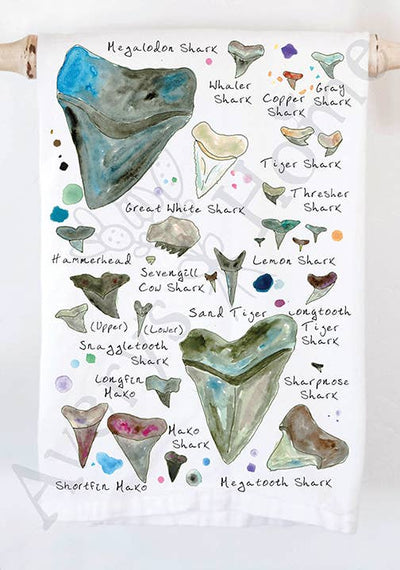 Megalodon Shark
Whaler
Shark
Copper
Shark
Gray
Shark
Tiger Shark
Great White Shark
Thresher
Shark
Hammerhead
Sevengill
Cow Shark
Lemon Shark
Sand Tiger
Longtooth
Tiger
Shark
(Upper)
(Lower)
Snaggletooth
Shark
Longfin
Mako
Sharpnose
Shark
Mako
Shark
Shortfin Mako
Megatooth Shark